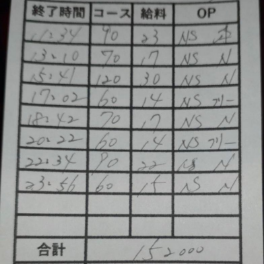 終了時間 コース 給料 OP
11:34 90 23 NS
13:10 70 17 NS N
15:41 120 30 NS N
17:02 60 14 NS フリー
18:42 70 17 NS N
20:22 60 14 NS フリー
22:34 90 22 NS N
23:56 60 15 NS N
合計 152000